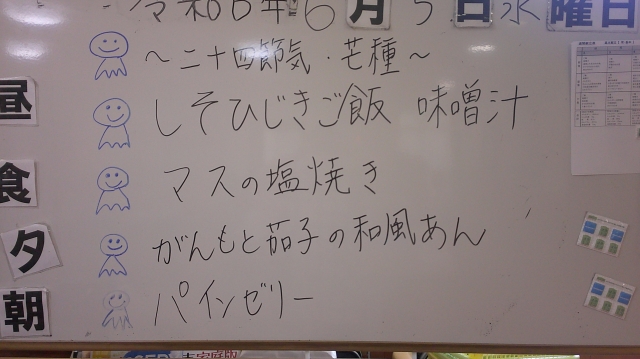 令和6年 6月5日水曜日
～二十四節気・芒種～
しそひじきご飯 味噌汁
マスの塩焼き
がんもと茄子の和風あん
パインゼリー
昼
食
夕
朝